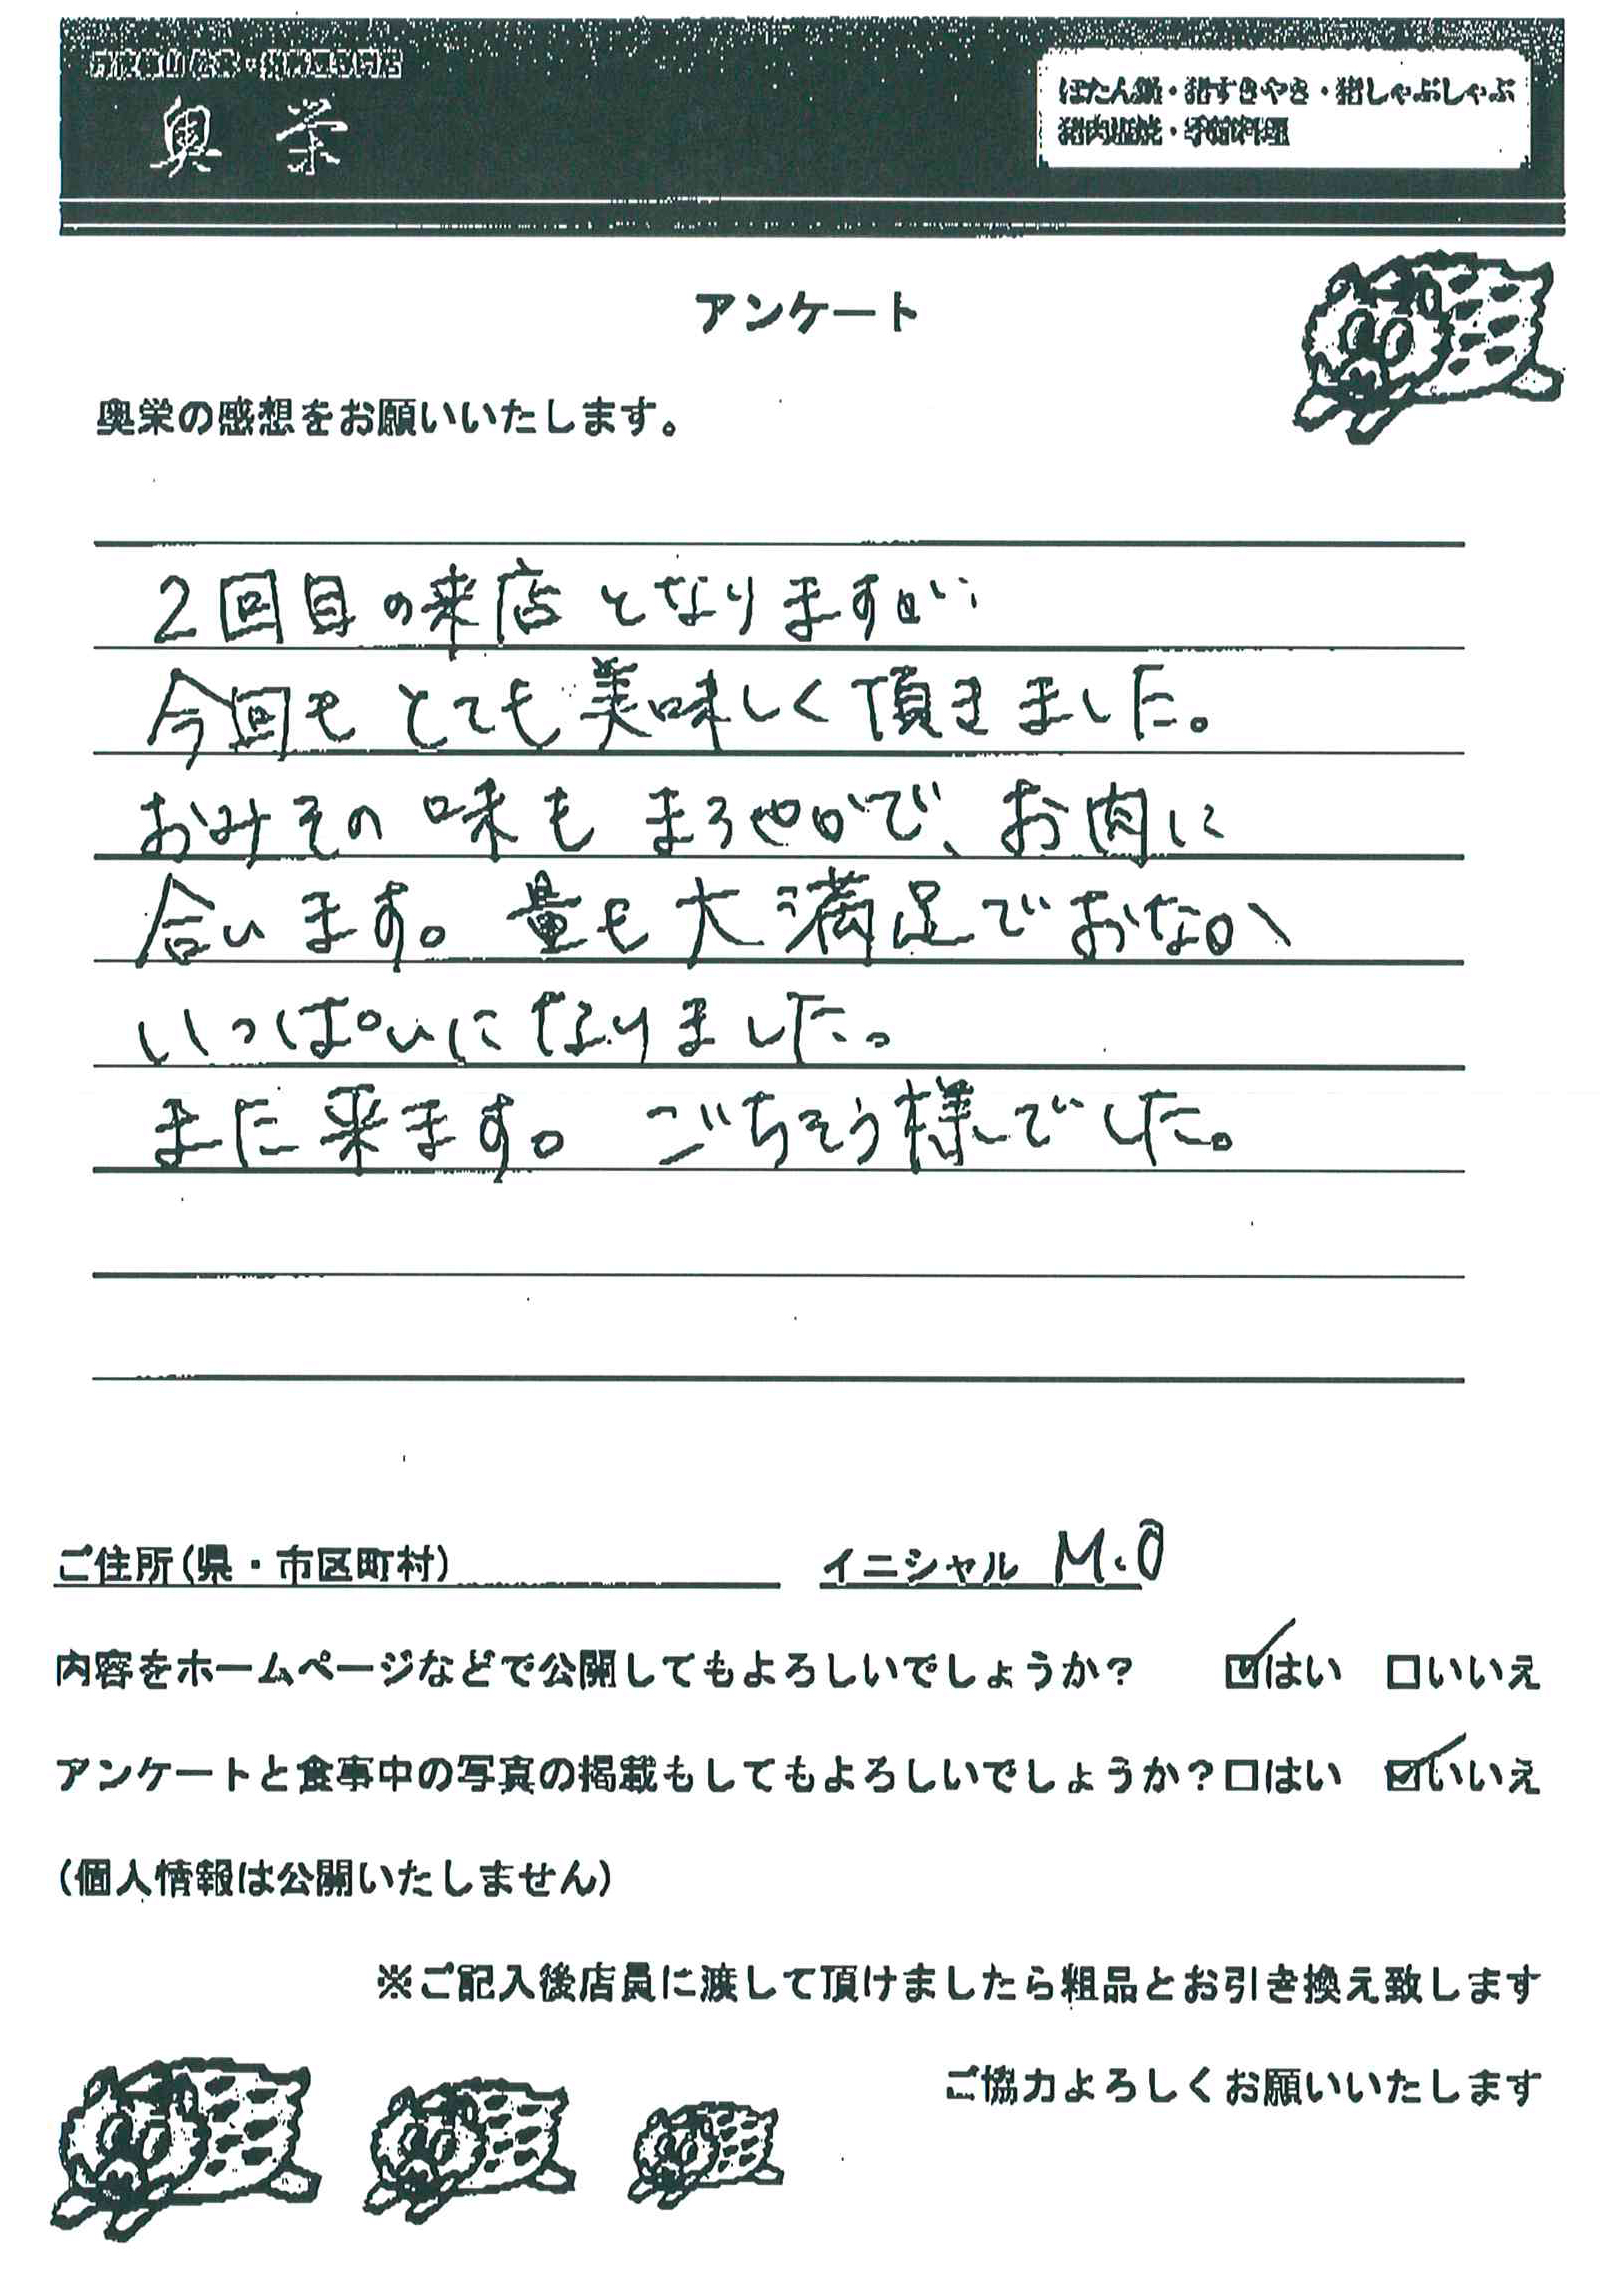 奥栄
ぼたん鍋・猪すきやき・猪しゃぶしゃぶ
猪肉塩焼・季節料理
アンケート
奥栄の感想をお願いいたします。
2回目の来店となりますが
今回もとても美味しく頂きました。
おみその味もまろやかで、お肉に
合います。量も大満足でおなか
いっぱいになりました。
また来ます。ごちそう様でした。
ご住所(県・市区町村) イニシャル M.O
内容をホームページなどで公開してもよろしいでしょうか? ☑はい □いいえ
アンケートと食事中の写真の掲載もしてもよろしいでしょうか?□はい ☑いいえ
(個人情報は公開いたしません)
※ご記入後店員に渡して頂けましたら粗品とお引き換え致します
ご協力よろしくお願いいたします